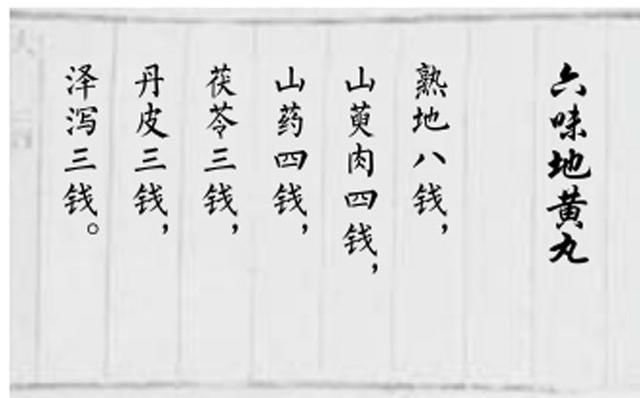 六味地黄丸
熟地八钱，
山萸肉四钱，
山药四钱，
茯苓三钱，
丹皮三钱，
泽泻三钱。